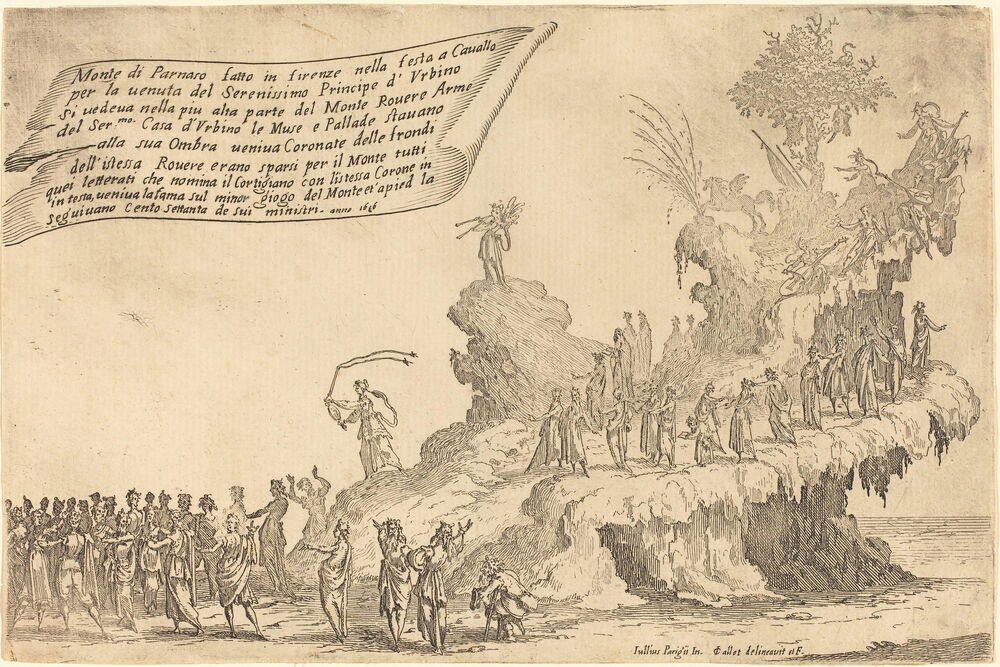 Monte di Parnaso fatto in firenze nella festa a Cauallo
per la uenuta del Serenissimo Principe d' Vrbino
Si uedeua nella piu alta parte del Monte Rouere Arme
del Ser.mo Casa d'Vrbino le Muse e Pallade stauano
alla sua Ombra ueniua Coronate delle frondi
dell'istessa Rouere erano sparsi per il Monte tutti
quei letterati che nomina il Cortigiano con l'istessa Corone in
in testa, ueniua la fama sul minor giogo del Monte et apied la
seguiuano Cento Settanta de sui ministri. anno 1616
Iullius Parigii In. Callot delineauit et F.